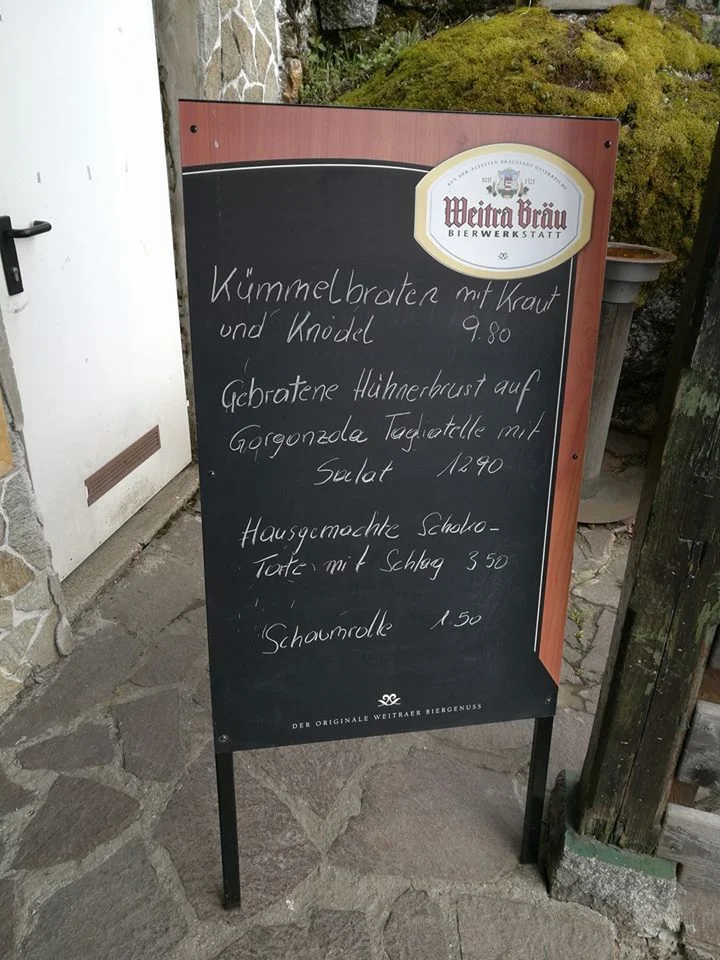 AUS DER ÄLTESTEN BRAUSTADT ÖSTERREICHS
SEIT 1321
Weitra Bräu
BIERWERKSTATT
Kümmelbraten mit Kraut
und Knödel 9.80
Gebratene Hühnerbrust auf
Gorgonzola Tagliatelle mit
Salat 12.90
Hausgemachte Schoko-
Torte mit Schlag 3.50
Schaumrolle 1.50
DER ORIGINALE WEITRAER BIERGENUSS